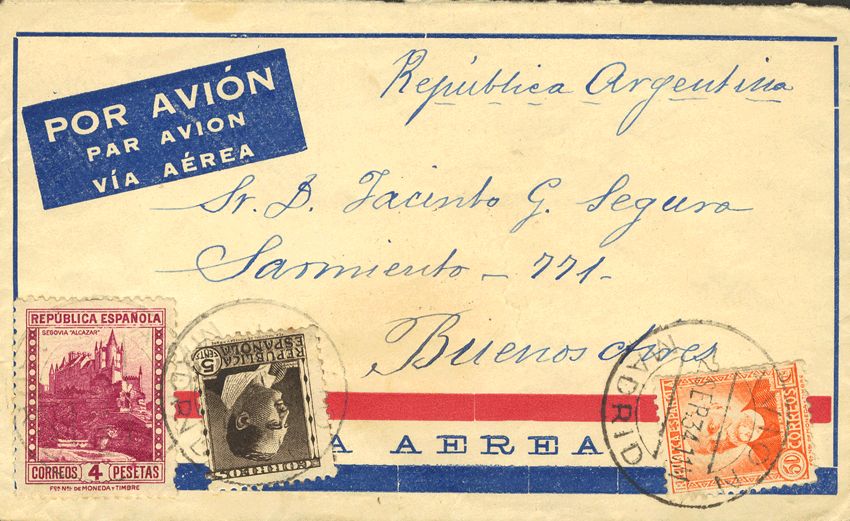 POR AVIÓN
PAR AVION
VÍA AÉREA
República Argentina
Sr. D. Jacinto G. Segura
Sarmiento - 771-
Buenos Aires
REPÚBLICA ESPAÑOLA
SEGOVIA "ALCAZAR"
CORREOS 4 PESETAS
REPÚBLICA ESPAÑOLA
5 CENTS
CORREOS
MADRID
A AEREA
MADRID
CORREOS